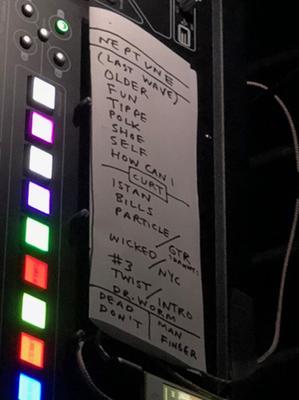 NEPTUNE
(LAST WAVE)
OLDER
FUN
TIPPE
POLK
SHOE
SELF
HOW CAN I
CURT
ISTAN
BILLS
PARTICLE/GTR
WICKED
#3/NYC
TWIST/INTRO
DR. WORM
DEAD MAN
DON'T FINGER